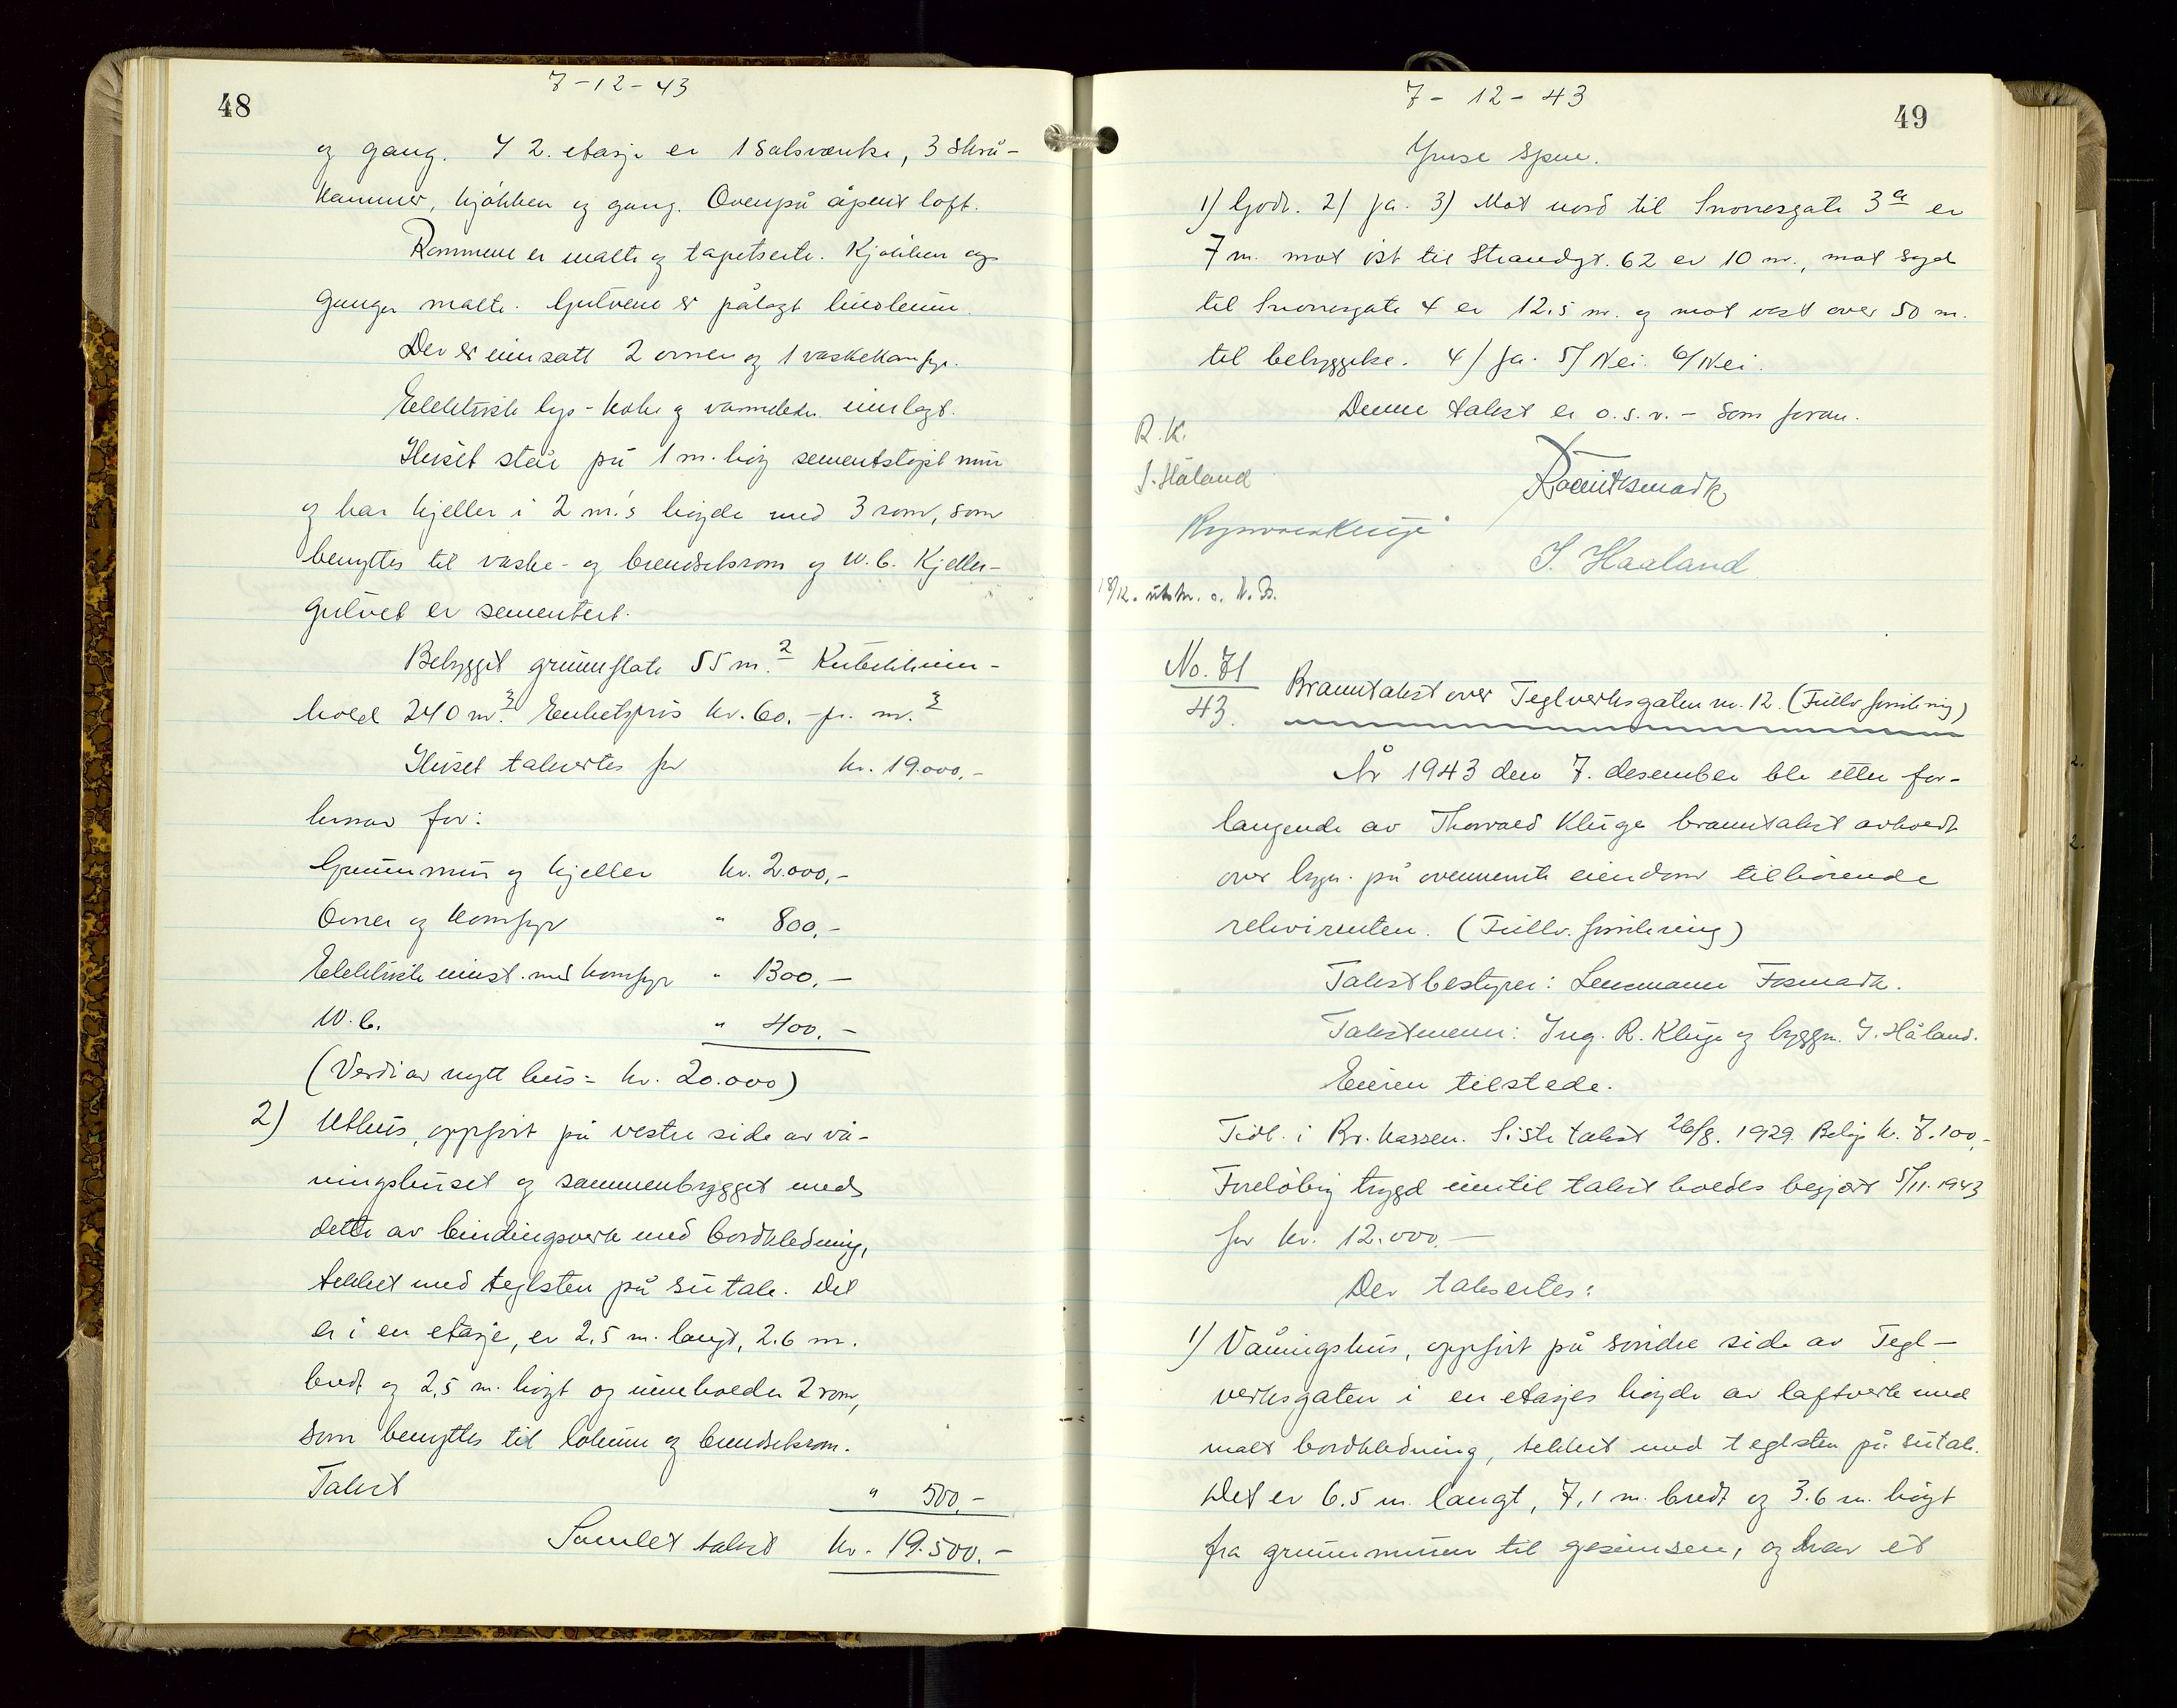 48
7-12-43
og gang. I 2. etasje er 1 salsværelse, 3 skrå-
kammer, kjøkken og gang. Ovenpå åpent loft.
Rommene er malte og tapetserte. Kjøkken og
ganger malte. Gulvene er pålagt linoleum.
Der er innsatt 2 ovner og 1 vaskekomfyr.
Elektrisk lys - koke og vannledn. innlagt.
Huset står på 1 m. høy sementstøpt mur
og har kjeller i 2 m's høyde med 3 rom, som
benyttes til vaske- og brendselsrom og W.C. Kjeller-
gulvet er sementert.
Bebygget grunnflate 55 m.2 Kubikkinn-
hold 240 m3. Enhetspris kr. 60.- pr. m.3
Huset takseres for kr. 19.000,-
herav for:
Grunnmur og kjeller kr. 2.000,-
Ovner og komfyr " 800,-
Elektrisk innst. med komfyr " 1300,-
W.C. " 400,-
(Verdi av nytt hus = kr. 20.000)
2) Uthus, oppført på vestre side av vå-
ningshuset og sammenbygget med
dette av bindingsverk med bordkledning,
tekket med teglsten på sutak. Det
er i en etasje, er 2,5 m. langt, 2.6 m.
bredt og 2,5 m. høgt og inneholder 2 rom,
som benyttes til lokum og brendselsrom.
Takst " 500,-
Samlet takst kr. 19.500.-
49
7-12-43
1) Godt. 2) Ja. 3) Mot nord til Snorresgate 3a er
7 m. mot øst til Strandgt. 62 er 10 m., mot syd
til Snorresgate 4 er 12,5 m. og mot vest over 50 m.
til bebyggelse. 4) Ja. 5) Nei. 6) Nei.
Denne takst er o.s.v. - som foran.
R.K.
J. Håland
J. Haaland
18/12. utskr. s. N. B.
No. 71
43.
Branntakst over Teglverksgaten nr. 12. (Fullv. forsikring)
År 1943 den 7. desember ble etter for-
langende av Thorvald Kluge branntakst avholdt
over bygn. på ovennevnte eiendom tilhørende
rekvirenten. (Fullv. forsikring)
Takstbestyrer: Lensmann Fosmark.
Takstmenn: Ing. R. Kluge og byggm. J. Håland.
Eieren tilstede.
Tidl. i Br. kassen. Siste takst 26/8. 1929. Beløp kr. 7.100,-
Foreløbig trygd inntil takst holdes begjært 5/11. 1943
for kr. 12.000.-
Der takseres:
1) Våningshus, oppført på søndre side av Tegl-
verksgaten i en etasjes høyde av laftverk med
malt bordkledning, tekket med teglsten på sutak.
Det er 6.5 m. langt, 7,1 m. bredt og 3.6 m. høgt
fra grunnmuren til gesimsen, og har et